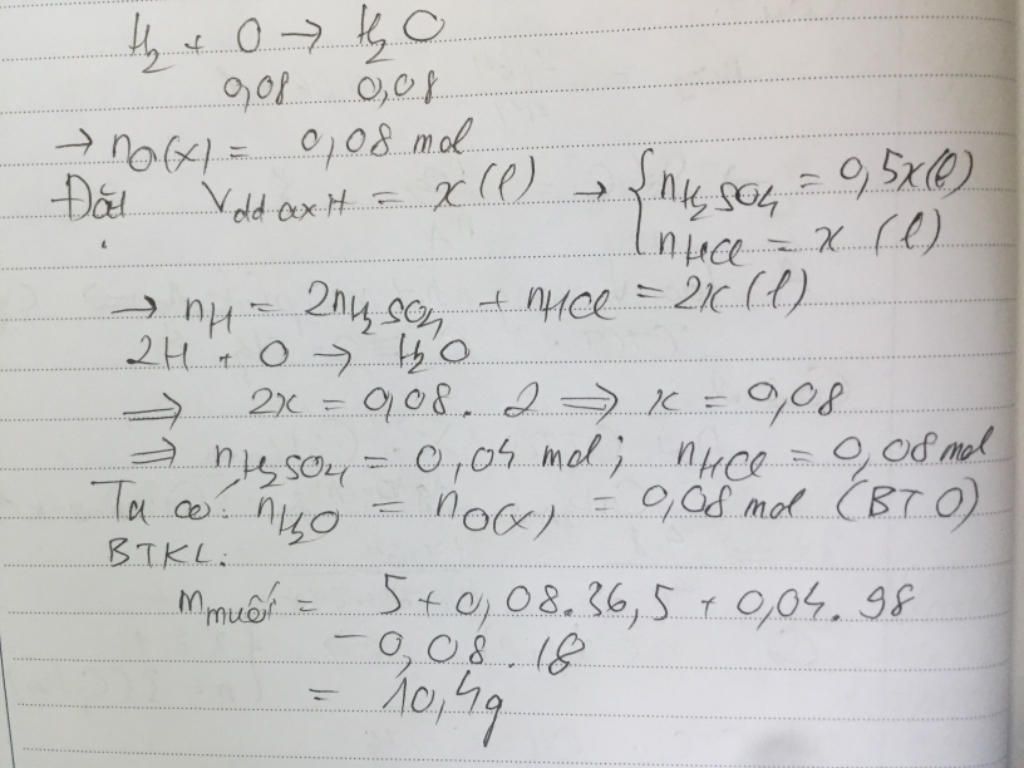 H₂ + O → H₂O
0,08 0,08
→ nO(X) = 0,08 mol
Đặt Vdd axit = x (l) → { nH₂SO₄ = 0,5x(l)
nHCl = x (l)
→ nH = 2nH₂SO₄ + nHCl = 2x (l)
2H + O → H₂O
⇒ 2x = 0,08. 2 ⇒ x = 0,08
⇒ nH₂SO₄ = 0,04 mol; nHCl = 0,08 mol
Ta có: nH₂O = nO(X) = 0,08 mol (BT O)
BTKL:
mmuối = 5 + 0,08.36,5 + 0,04.98
- 0,08.18
= 10,4g